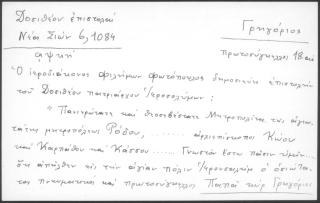 Δοσιθέου ἐπιστολαί
Γρηγόριος
Νέα Σιών 6, 1084
πρωτοσύγκελλος 18 αἰ
αψκή
Ὁ ἱεροδιάκονος φιλήμων φωτόπουλος δημοσιεύει ἐπιστολήν
τοῦ Δοσιθέου πατριάρχου Ἱεροσολύμων:
"Πανιερώτατε καὶ θεοσεβέστατε Μητροπολῖτα τῆς ἁγιω-
τάτης μητροπόλεως Ρόδου, ........ ἀρχιεπίσκοποι Κώου
καὶ Καρπάθου καὶ Κάσσου .... Γνωστὸν ἔστω πᾶσιν ὑμῖν...
ὅτι ἀπῆλθεν εἰς τὴν ἁγίαν πόλιν Ἱερουσαλὴμ ὁ ὁσιώτα-
τος πνευματικὸς καὶ πρωτοσύγκελλος Παπᾶ κὺρ Γρηγόριος